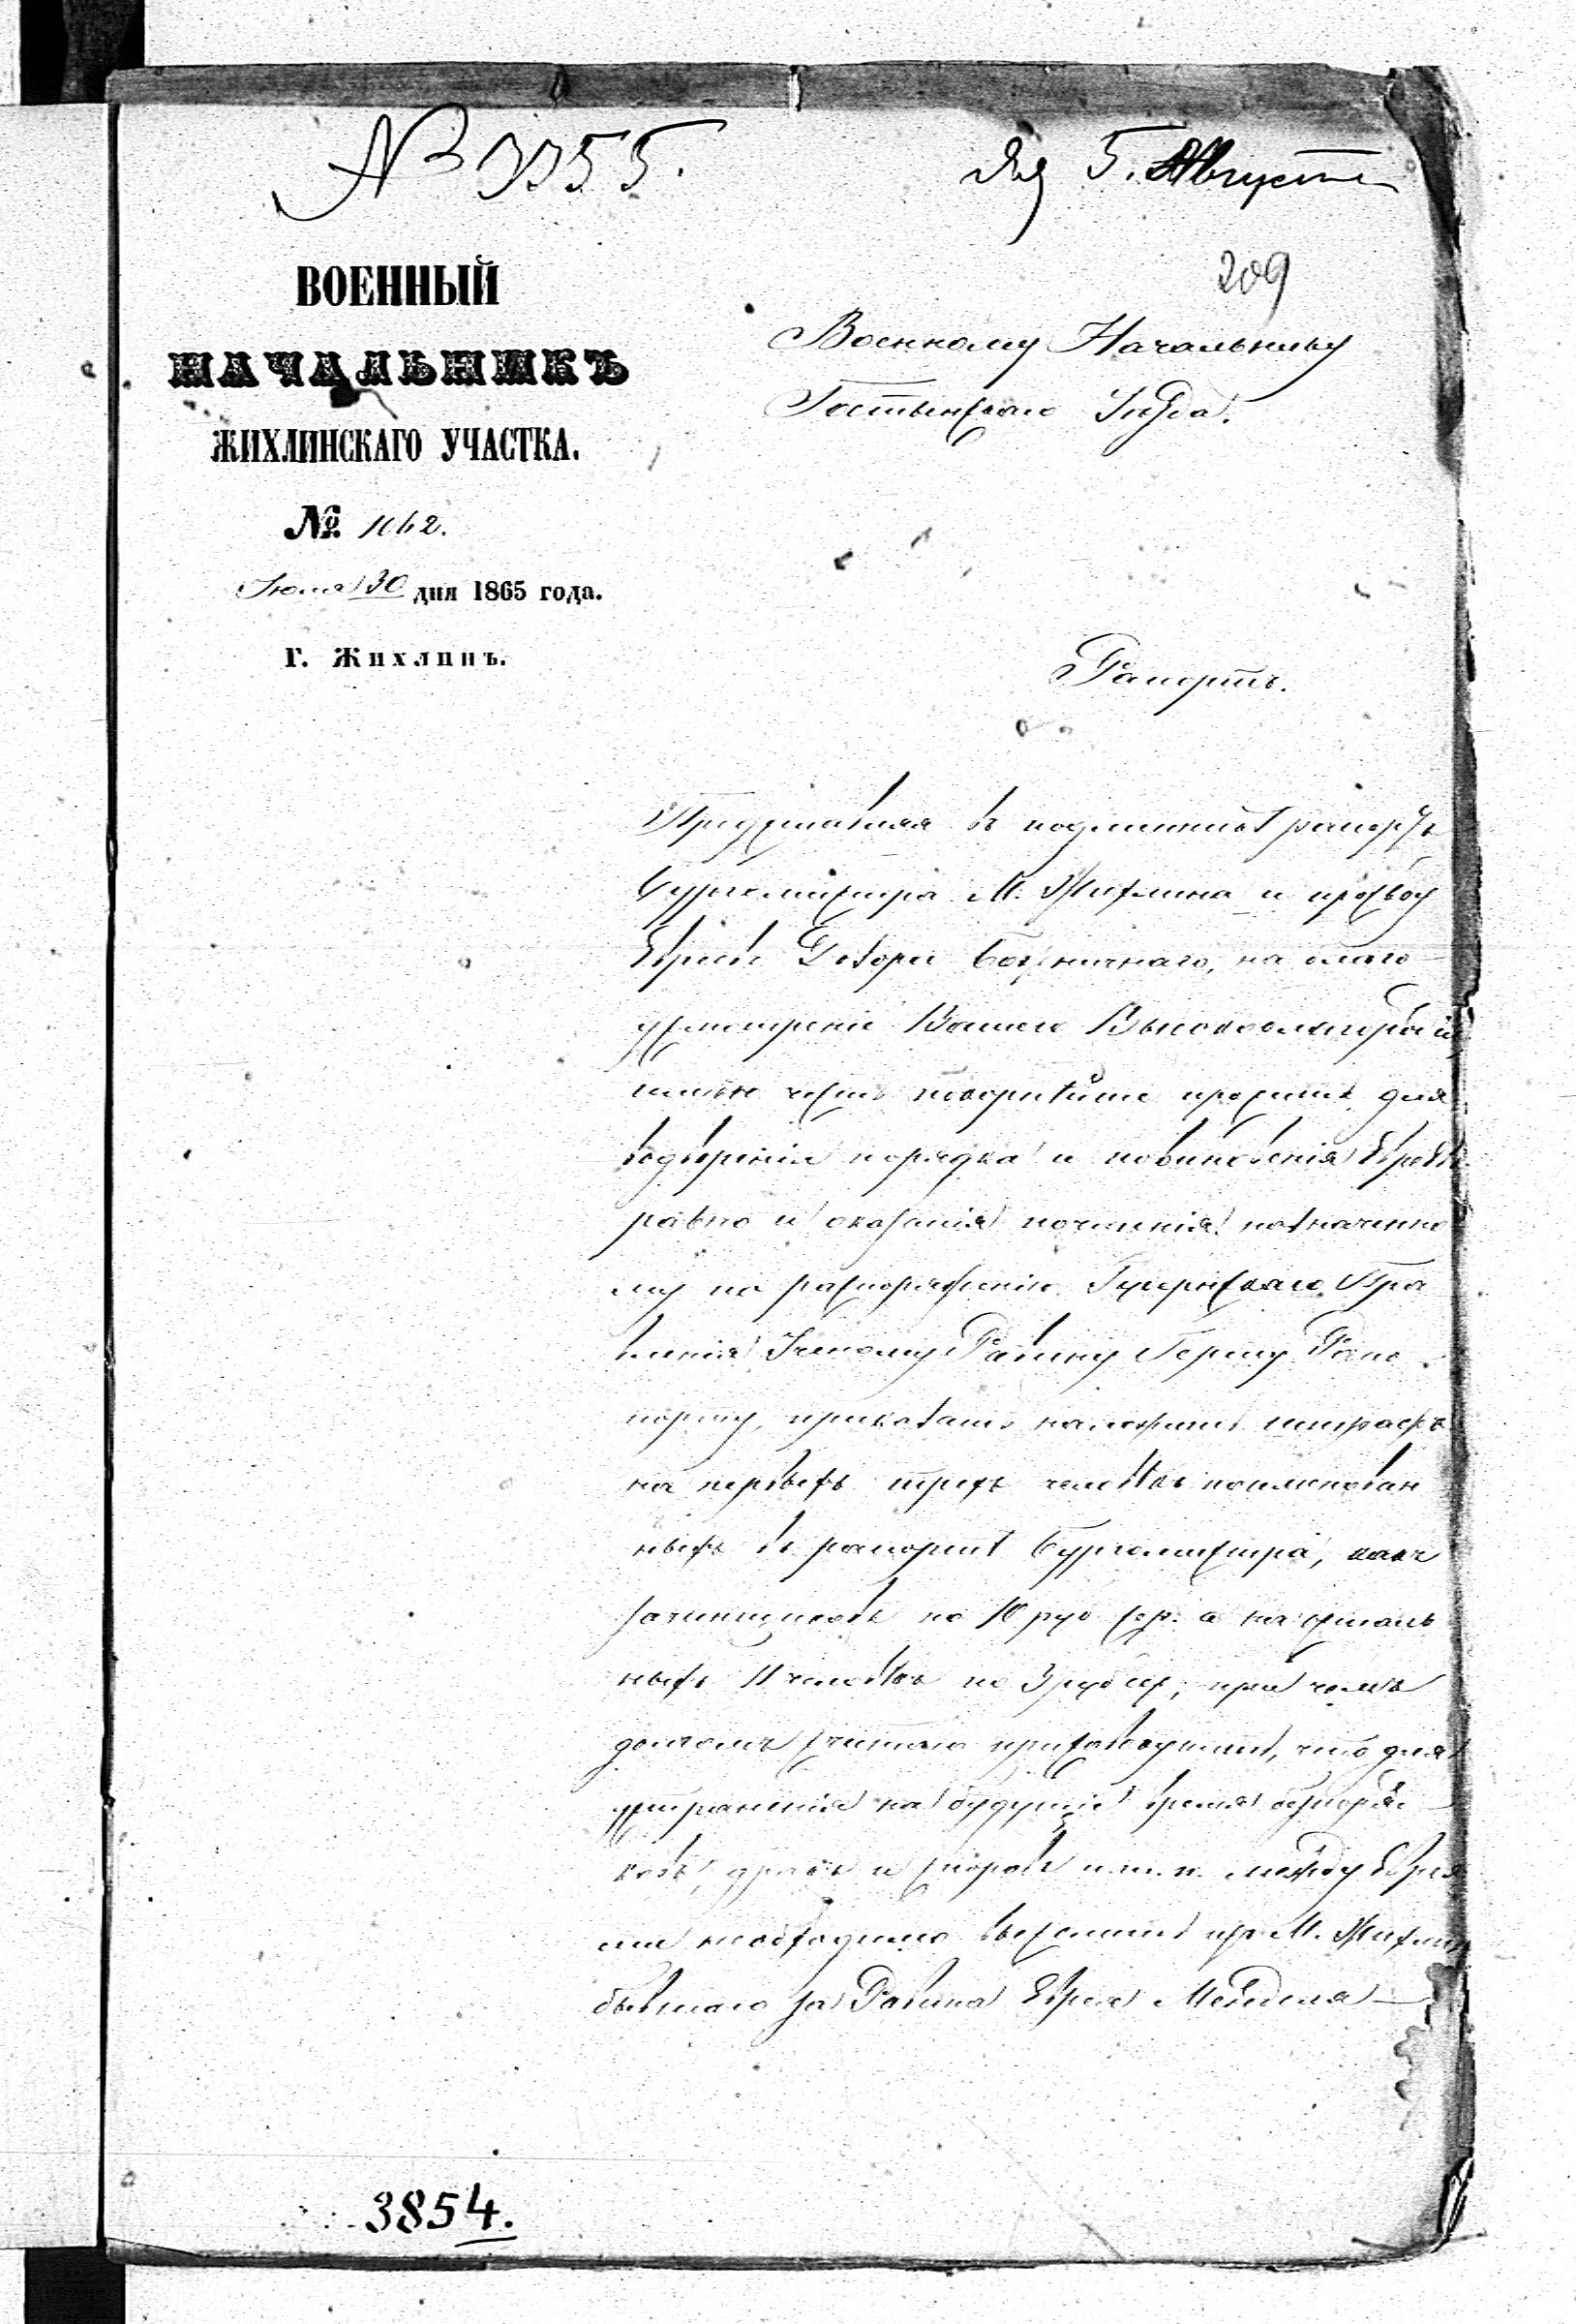 № 3355.
5. Августа
209
ВОЕННЫЙ
НАЧАЛЬНИКЪ
ЖИХЛИНСКАГО УЧАСТКА.
№ 1042.
30 дня 1865 года.
Г. Жихлинъ.
Военному Начальнику
Гостынскаго Уѣзда.
Рапортъ.
Представляя въ подлинникѣ рапортъ
Бургомистра М. Жихлина и
Божничнаго, на благо
усмотреніе Вашего Высокоблагородія
имѣю честь покорнѣйше просить для
водворенія порядка и повиновенія Евреевъ
равно и оказанія почтенія назначенно
му по распоряженію Губернскаго Пра
вленія Раввину Герцу Рапо
порту, приказать наложить штрафъ
на первыхъ трехъ человѣкъ поименован
ныхъ въ рапортѣ Бургомистра, какъ
зачинщиковъ по 10 руб сер. а на осталь
ныхъ 11 человѣкъ по 3 руб сер, при чемъ
долгомъ считаю присовокупить, что для
устраненія на будущее время безпоряд
ковъ, дракъ и споровъ и т. п. между Еврея
ми необходимо выслать изъ М. Жихлина
бывшаго за Равина Еврея Менделя
3854.